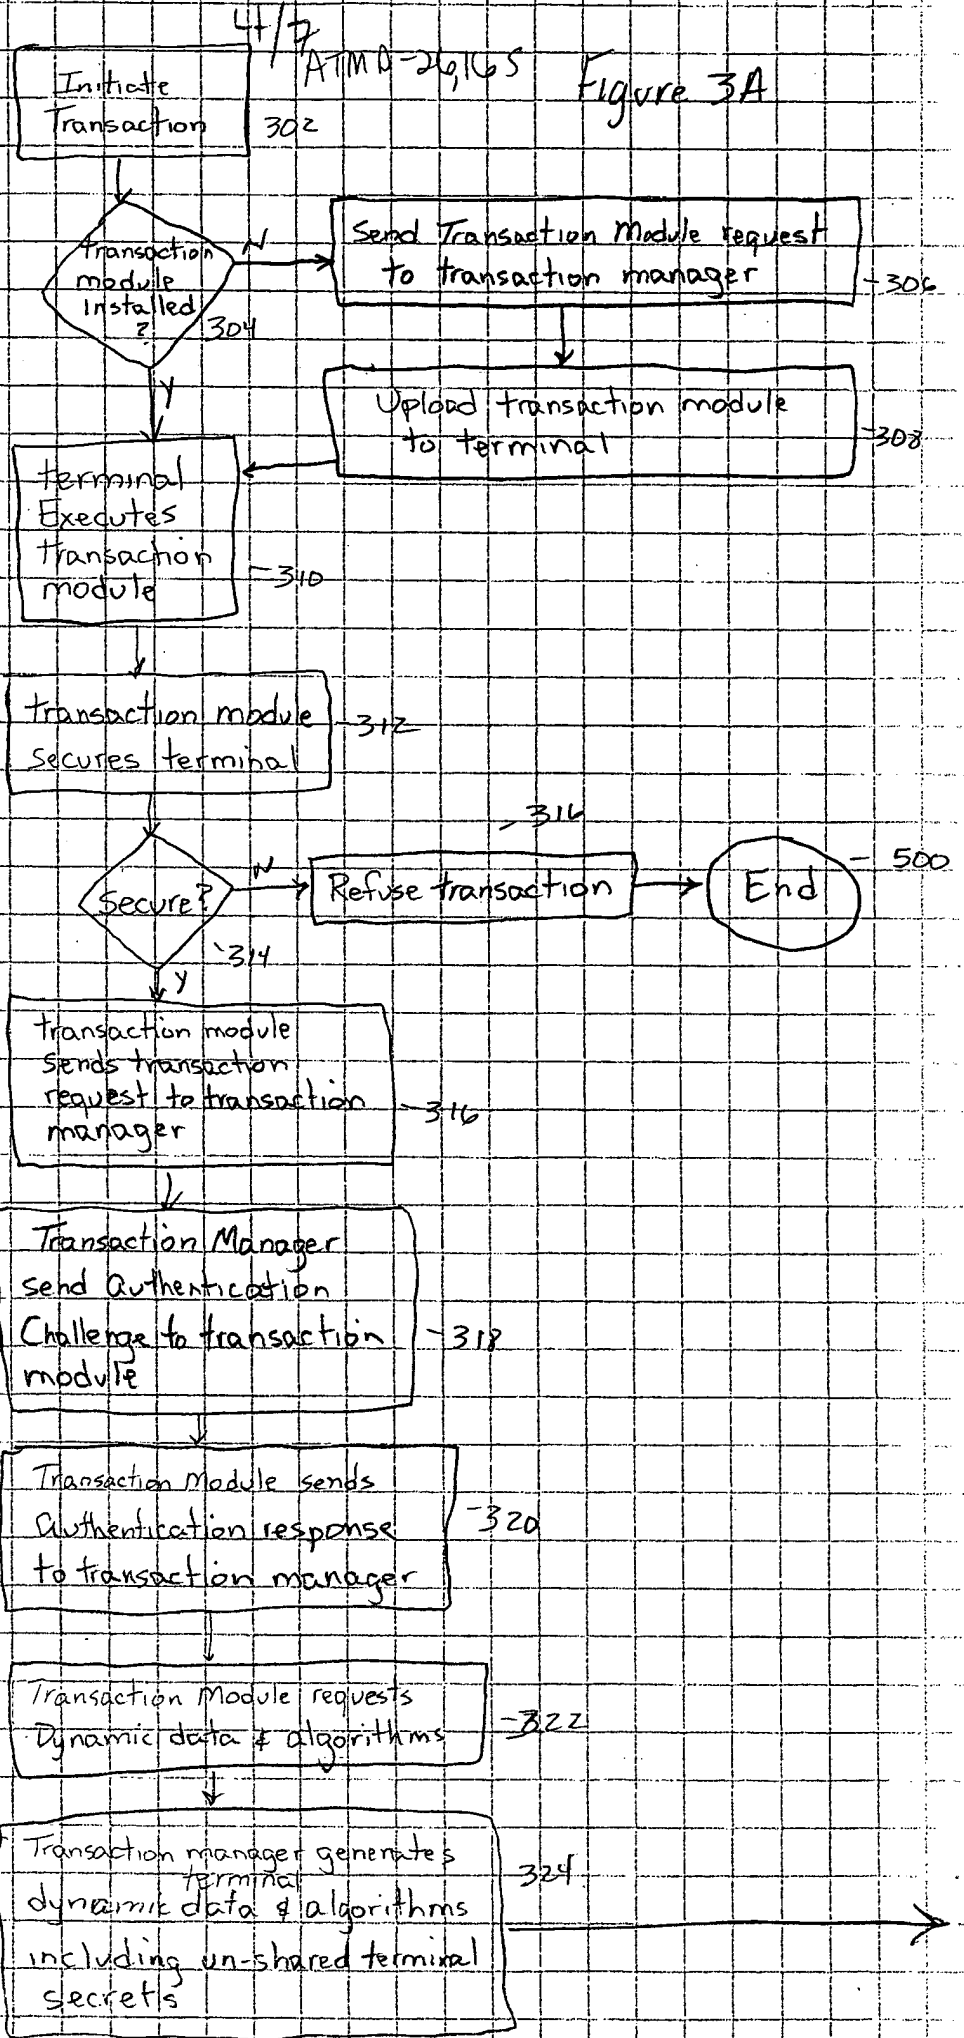 4/7
ATMD-26,165
Figure 3A
Initiate
Transaction
302
transaction
module
installed
?
304
N
Send Transaction Module request
to transaction manager
306
Y
Upload transaction module
to terminal
308
terminal
Executes
transaction
module
310
transaction module
secures terminal
312
316
Secure?
N
Refuse transaction
End
500
314
Y
transaction module
sends transaction
request to transaction
manager
316
Transaction Manager
send Authentication
Challenge to transaction
module
318
Transaction Module sends
Authentication response
to transaction manager
320
Transaction Module requests
Dynamic data & algorithms
322
Transaction manager generates
terminal
dynamic data & algorithms
including un-shared terminal
secrets
324